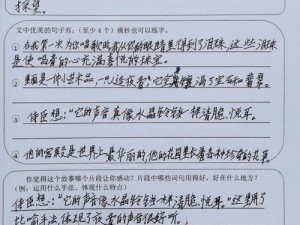 探望。
文中优美的句子有:(至少4个)摘抄也可以练字。
① 在我第一次为你唱歌时,我从你的眼睛里得到了泪珠,这些泪珠
是使唱者的心充满喜悦的珠宝。
② 它是一件小艺术品,一只造夜莺,它全身镶满了宝石和翡翠
③ 侍臣想:"它的声音真像水晶铃铛一样清脆、悦耳。
④ 他的宫殿是世界上最华丽的,他的花园里长着各种珍奇的花草
你觉得这个故事哪个片段让你感动?片段中哪些词句用得好,好在什么地方?
(例:运用什么手法、体现什么特点)
侍臣想:"它的声音像水晶铃铛一样清脆、悦耳。"这里用了
比喻手法,体现了夜莺的声音很好听。